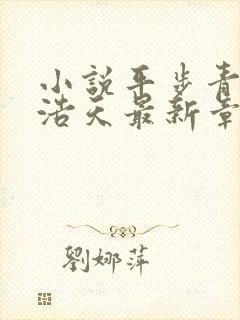 小說平步青
浩天最新章
劉娜萍